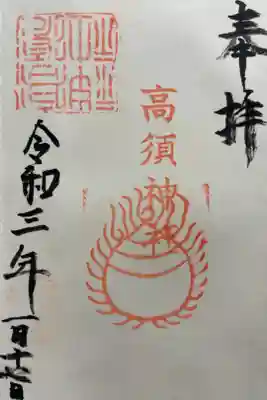 奉拝
高須神社
令和三年
一月十七日